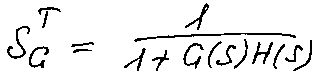 S_G^T = \frac{1}{1+G(S)H(S)}